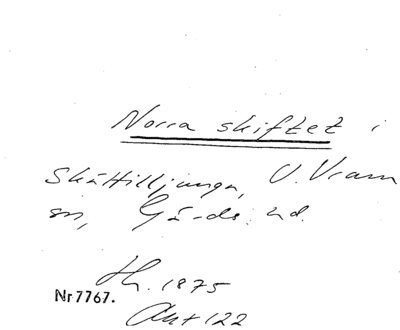 Norra skiftet i
Skättilljunga, V. Vram
sn, Gärds hd.
Th. 1875
Nr 7767.
Ant 122